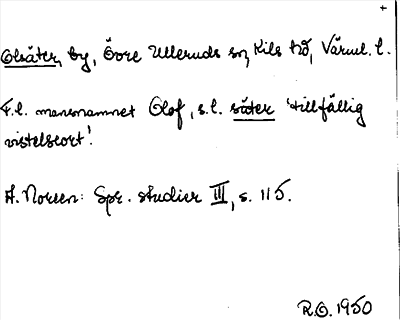 +
Olsäter, by, Övre Ulleruds sn, Kils hd, Värml. l.
F.l. mansnamnet Olof, s.l. säter 'tillfällig
vistelseort'.
A. Noreen: Spr. studier III, s. 115.
R.O. 1950